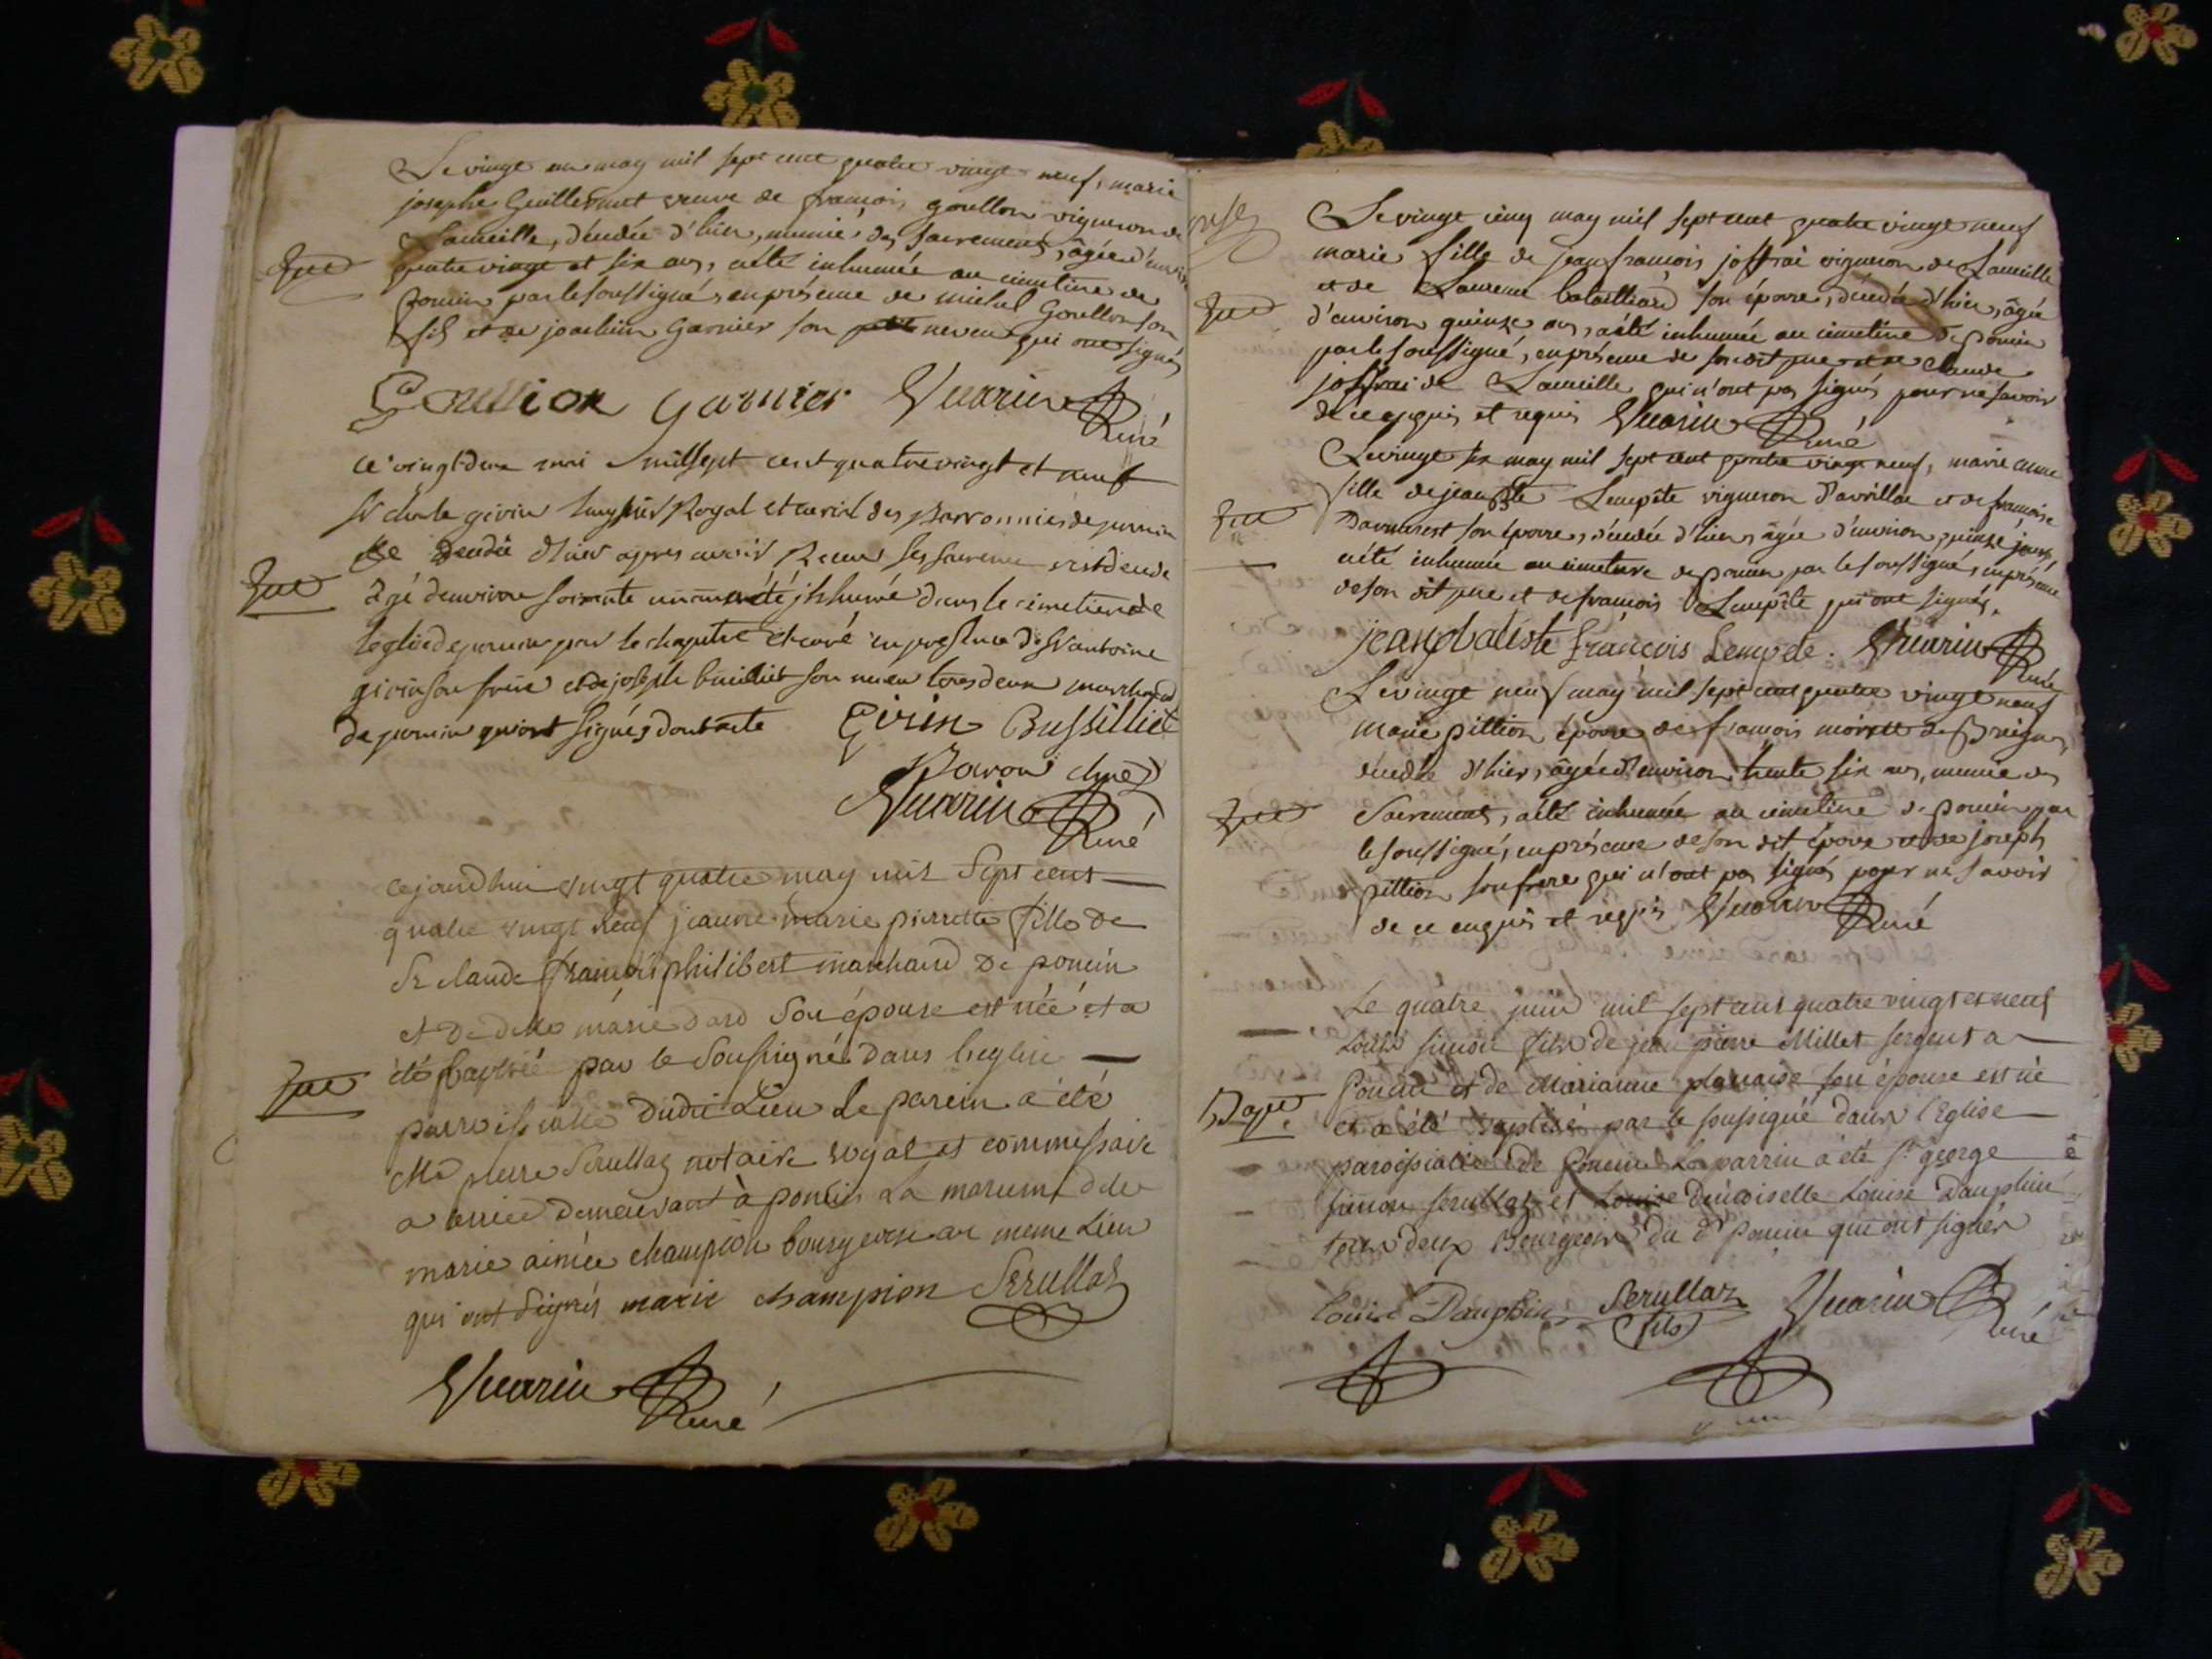 Le vingt un may mil sept cent quatre vingt neuf, marie
josephe Guillermet veuve de françois goullon vigneron de
Lameille, décédée d'hier, munie des sacrements, âgée d'environ
quatre vingt et six ans, a été inhumée au cimetiere de
poncin par le soussigné, en présence de michel Goullon son
fils et de joachim Garnier son neveu qui ont signés
Goullion garnier Vuarin
Curé
ce vingt deux mai mil sept cent quatre vingt et neuf
Sr
Royal et des Barronnies de poncin
décédé d'hier apres avoir Receu ses sacremens
âgé d'environ soixante un an a été jnhumé dans le cimetiere de
l'eglise de poncin par le chapitre et curé en presence de Sr antoine
girin son frere et de joseph son neveu tous deux marchand
de poncin qui ont signés
Girin Bussilliet
Baron
Vuarin
Curé
cejourdhui vingt quatre may mil Sept cent
quatre vingt neuf jeanne marie pierrette fille de
Sr claude François philibert marchand De poncin
et De dlle marie dard Son épouse est née et a
été baptisé par le Soussigné Dans l'eglise
parroissialle Dudit Lieu Le parein a été
Me pierre Serullaz notaire royal et commissaire
a terrier Demeurant à poncin La mareine dlle
marie aimée champion bourgeoise au meme Lieu
qui ont Signés marie champion Serullaz
Vuarin
Curé
Le vingt cinq may mil sept cent quatre vingt neuf
marie fille de jean françois joffrai vigneron de Lameille
et de Laurence bataillard son épouse, décédée d'hier, âgée
d'environ quinze ans, a été inhumée au cimetiere de poncin
par le soussigné, en présence de son dit pere et de claude
joffrai de Lameille qui n'ont pas signés pour ne savoir
de ce enquis et requis Vuarin
Curé
Le vingt six may mil sept cent quatre vingt neuf, marie anne
fille de jean Bte Lempête vigneron d'avrillat et de françoise
son épouse, décédée d'hier, âgée d'environ quinze jours,
a été inhumée au cimetiere de poncin par le soussigné, en présence
de son dit pere et de françois Lempête qui ont signés.
jeanbatiste françois Lempete. Vuarin
Curé
Le vingt neuf may mil sept cent quatre vingt neuf
marie pittion épouse de françois
décédée d'hier, âgée d'environ trente six ans, munie des
Sacrements, a été inhumée au cimetiere de poncin par
le soussigné, en présence de son dit époux et de joseph
pittion son frere qui n'ont pas signés pour ne savoir
de ce enquis et requis Vuarin
Curé
Le quatre juin mil sept cent quatre vingt et neuf
Louis simon fils de jean pierre Millet sergent a
Poncin et de Marianne son épouse est né
et a été baptisé par le soussigné dans l'Eglise
paroissialle de Poncin Le parrin a été Sr george
simon serullaz et Louise demoiselle Louise Dauphin
tous deux Bourgeois du dt Poncin qui ont signés
Louise Dauphin Serullaz Vuarin
fils
Curé